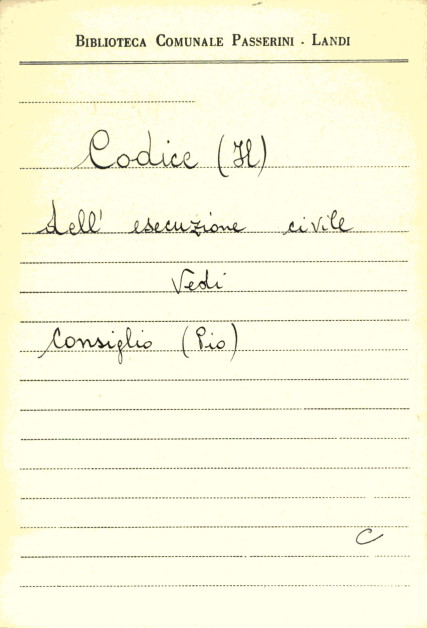 BIBLIOTECA COMUNALE PASSERINI - LANDI
Codice (Il)
dell' esecuzione civile
Vedi
Consiglio (Pio)
C